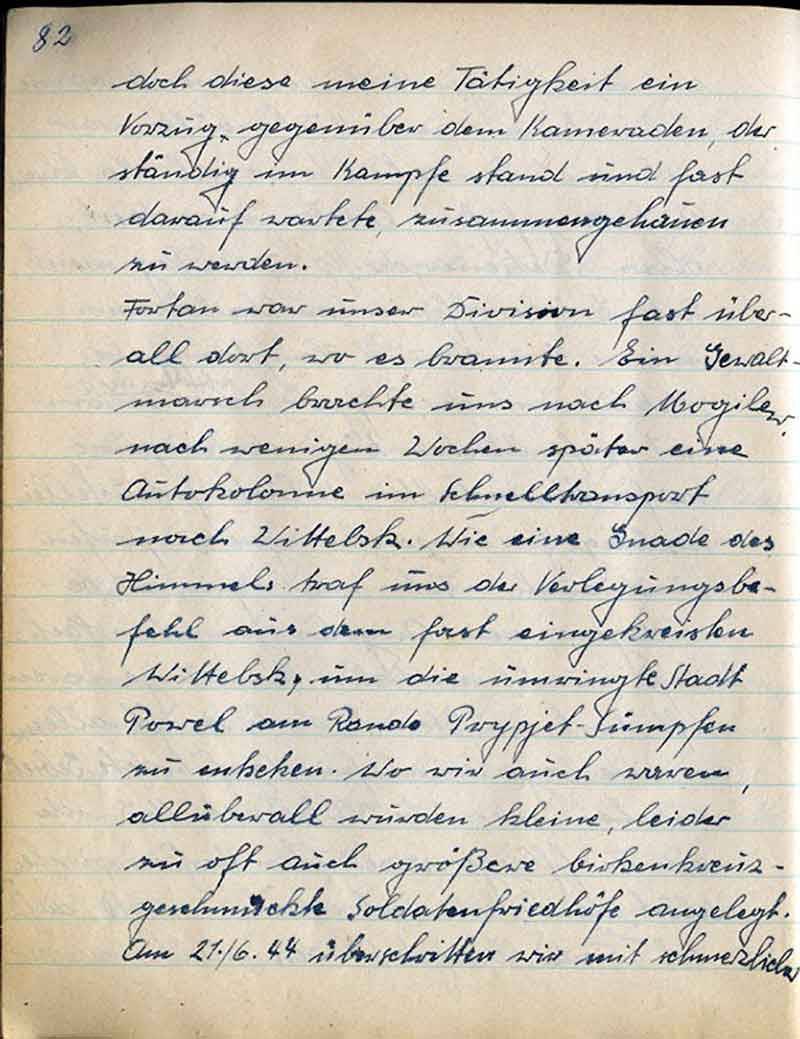 82
doch diese meine Tätigkeit ein
Vorzug gegenüber dem Kameraden, der
ständig im Kampfe stand und fast
darauf wartete, zusammengehauen
zu werden.
Fortan war unser Division fast über-
all dort, wo es brannte. Ein Gewalt-
marsch brachte uns nach Mogilew,
nach wenigen Wochen später eine
Autokolonne im Schnelltransport
nach Wittelsk. Wie eine Gnade des
Himmels traf uns der Verlegungsbe-
fehl aus dem fast eingekreisten
Wittelsk, um die umringte Stadt
Powel am Rande Prypjet-Sümpfen
zu entsetzen. Wo wir auch waren,
allüberall wurden kleine, leider
zu oft auch größere birkenkreuz-
geschmückte Soldatenfriedhöfe angelegt.
Am 21./6.44 überschritten wir mit schmerzlicher